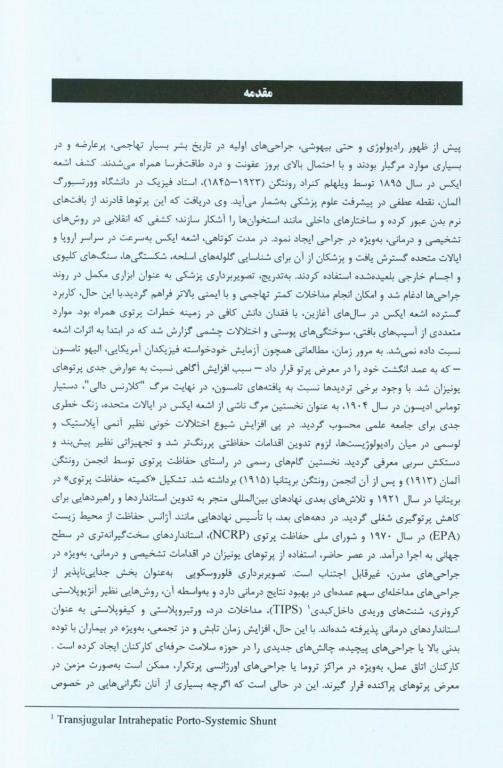 مقدمه
پیش از ظهور رادیولوژی و حتی بیهوشی، جراحی‌های اولیه در تاریخ بشر بسیار تهاجمی، پرعارضه و در
بسیاری موارد مرگبار بودند و با احتمال بالای بروز عفونت و درد طاقت‌فرسا همراه می‌شدند. کشف اشعه
ایکس در سال ۱۸۹۵ توسط ویلهلم کنراد رونتگن (۱۹۲۳–۱۸۴۵)، استاد فیزیک در دانشگاه وورتسبورگ
آلمان، نقطه عطفی در پیشرفت علوم پزشکی به‌شمار می‌آید. وی دریافت که این پرتوها قادرند از بافت‌های
نرم بدن عبور کرده و ساختارهای داخلی مانند استخوان‌ها را آشکار سازند؛ کشفی که انقلابی در روش‌های
تشخیصی و درمانی، به‌ویژه در جراحی ایجاد نمود. در مدت کوتاهی، اشعه ایکس به‌سرعت در سراسر اروپا و
ایالات متحده گسترش یافت و پزشکان از آن برای شناسایی گلوله‌های اسلحه، شکستگی‌ها، سنگ‌های کلیوی
و اجسام خارجی بلعیده‌شده استفاده کردند. به‌تدریج، تصویربرداری پزشکی به عنوان ابزاری مکمل در روند
جراحی‌ها ادغام شد و امکان انجام مداخلات کمتر تهاجمی و با ایمنی بالاتر فراهم گردید.با این حال، کاربرد
گسترده اشعه ایکس در سال‌های آغازین، با فقدان دانش کافی در زمینه خطرات پرتوی همراه بود. موارد
متعددی از آسیب‌های بافتی، سوختگی‌های پوستی و اختلالات چشمی گزارش شد که در ابتدا به اثرات اشعه
نسبت داده نمی‌شد. به مرور زمان، مطالعاتی همچون آزمایش خودخواسته فیزیکدان آمریکایی، الیهو تامسون
– که به عمد انگشت خود را در معرض پرتو قرار داد – سبب افزایش آگاهی نسبت به عوارض جدی پرتوهای
یونیزان شد. با وجود برخی تردیدها نسبت به یافته‌های تامسون، در نهایت مرگ "کلارنس دالی"، دستیار
توماس ادیسون در سال ۱۹۰۴، به عنوان نخستین مرگ ناشی از اشعه ایکس در ایالات متحده، زنگ خطری
جدی برای جامعه علمی محسوب گردید. در پی افزایش شیوع اختلالات خونی نظیر آنمی آپلاستیک و
لوسمی در میان رادیولوژیست‌ها، لزوم تدوین اقدامات حفاظتی پررنگ‌تر شد و تجهیزاتی نظیر پیش‌بند و
دستکش سربی معرفی گردید. نخستین گام‌های رسمی در راستای حفاظت پرتوی توسط انجمن رونتگن
آلمان (۱۹۱۳) و پس از آن انجمن رونتگن بریتانیا (۱۹۱۵) برداشته شد. تشکیل «کمیته حفاظت پرتوی» در
بریتانیا در سال ۱۹۲۱ و تلاش‌های بعدی نهادهای بین‌المللی منجر به تدوین استانداردها و راهبردهایی برای
کاهش پرتوگیری شغلی گردید. در دهه‌های بعد، با تأسیس نهادهایی مانند آژانس حفاظت از محیط زیست
(EPA) در سال ۱۹۷۰ و شورای ملی حفاظت پرتوی (NCRP)، استانداردهای سخت‌گیرانه‌تری در سطح
جهانی به اجرا درآمد. در عصر حاضر، استفاده از پرتوهای یونیزان در اقدامات تشخیصی و درمانی، به‌ویژه در
جراحی‌های مدرن، غیرقابل اجتناب است. تصویربرداری فلوروسکوپی  به‌عنوان بخش جدایی‌ناپذیر از
جراحی‌های مداخله‌ای سهم عمده‌ای در بهبود نتایج درمانی دارد و به‌واسطه آن، روش‌هایی نظیر آنژیوپلاستی
کرونری، شنت‌های وریدی داخل‌کبدی¹ (TIPS)، مداخلات درد، ورتبروپلاستی و کیفوپلاستی به عنوان
استانداردهای درمانی پذیرفته شده‌اند. با این حال، افزایش زمان تابش و دز تجمعی، به‌ویژه در بیماران با توده
بدنی بالا یا جراحی‌های پیچیده، چالش‌های جدیدی را در حوزه سلامت حرفه‌ای کارکنان ایجاد کرده است .
کارکنان اتاق عمل، به‌ویژه در مراکز تروما یا جراحی‌های اورژانسی پرتکرار، ممکن است به‌صورت مزمن در
معرض پرتوهای پراکنده قرار گیرند. این در حالی است که اگرچه بسیاری از آنان نگرانی‌هایی در خصوص
¹ Transjugular Intrahepatic Porto-Systemic Shunt